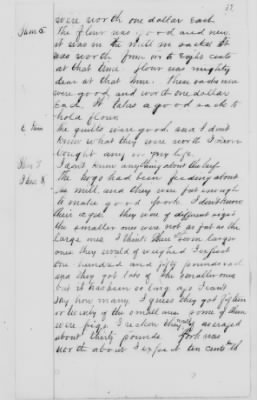 were worth one dollar each
Item 5 The flour was good and new.
it was in the mill in sacks. It
was worth from six to eight cents
at that time. flour was mighty
dear at that time. Them sacks
were good, and worth one dollar
Each. It takes a good sack to
hold flour.
The quilts were good, and I dont
know what they were worth I never
bought any in my life.
I dont know anything about the beef
The hogs had been feeding about
the mill, and they were fat enough
to make good pork. I dont know
their ages. they were of different sizes
the smaller ones were not as fat as the
large ones. I think them larger
ones they would of weighed I expect
one hundred and fifty pounds and
they got lots of the smaller ones
but it has been so long ago I cant
say how many. I guess they got fifteen
or twenty of the small ones some of them
were pigs. I reckon they averaged
about thirty pounds. Pork was
worth about I expect ten cents